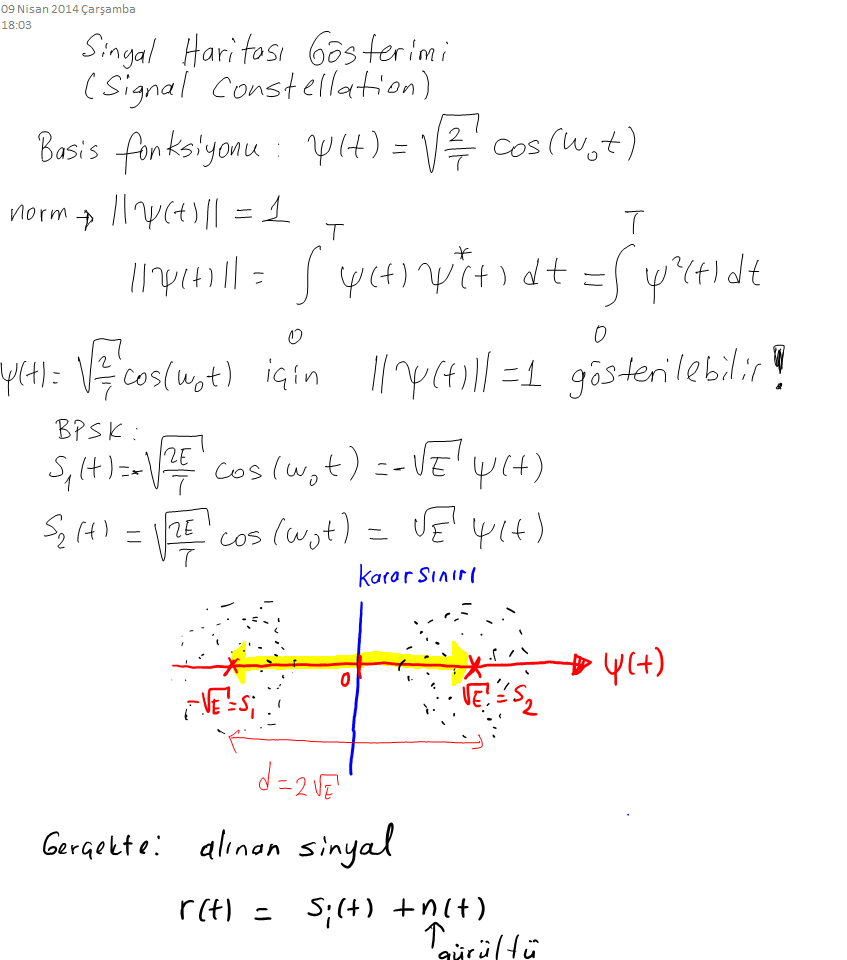 09 Nisan 2014 Çarşamba
18:03
Sinyal Haritası Gösterimi
(Signal Constellation)
Basis fonksiyonu : ψ(t) = √(2/T) cos(w₀t)
norm → ||ψ(t)|| = 1
||ψ(t)|| = ∫₀ᵀ ψ(t) ψ*(t) dt = ∫₀ᵀ ψ²(t) dt
ψ(t) = √(2/T) cos(w₀t) için ||ψ(t)|| = 1 gösterilebilir!
BPSK :
S₁(t) = -√(2E/T) cos(w₀t) = -√E ψ(t)
S₂(t) = √(2E/T) cos(w₀t) = √E ψ(t)
Karar Sınırı
ψ(t)
0
-√E = S₁
√E = S₂
d = 2√E
Gerçekte: alınan sinyal
r(t) = Sᵢ(t) + n(t)
↑
gürültü